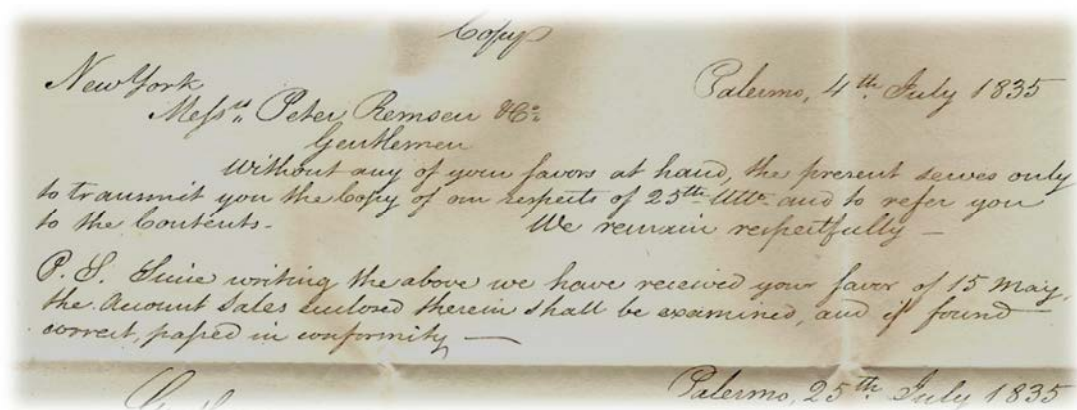 Copy
New York
Palermo, 4th July 1835
Messrs. Peter Remsen & Co.
Gentlemen
Without any of your favors at hand, the present serves only
to transmit you the Copy of our respects of 25th Ulto. and to refer you
to the Contents. We remain respectfully —
P. S. Since writing the above we have received your favor of 15 May,
the Account Sales enclosed therein shall be examined, and if found
correct, passed in conformity —
Palermo, 25th July 1835